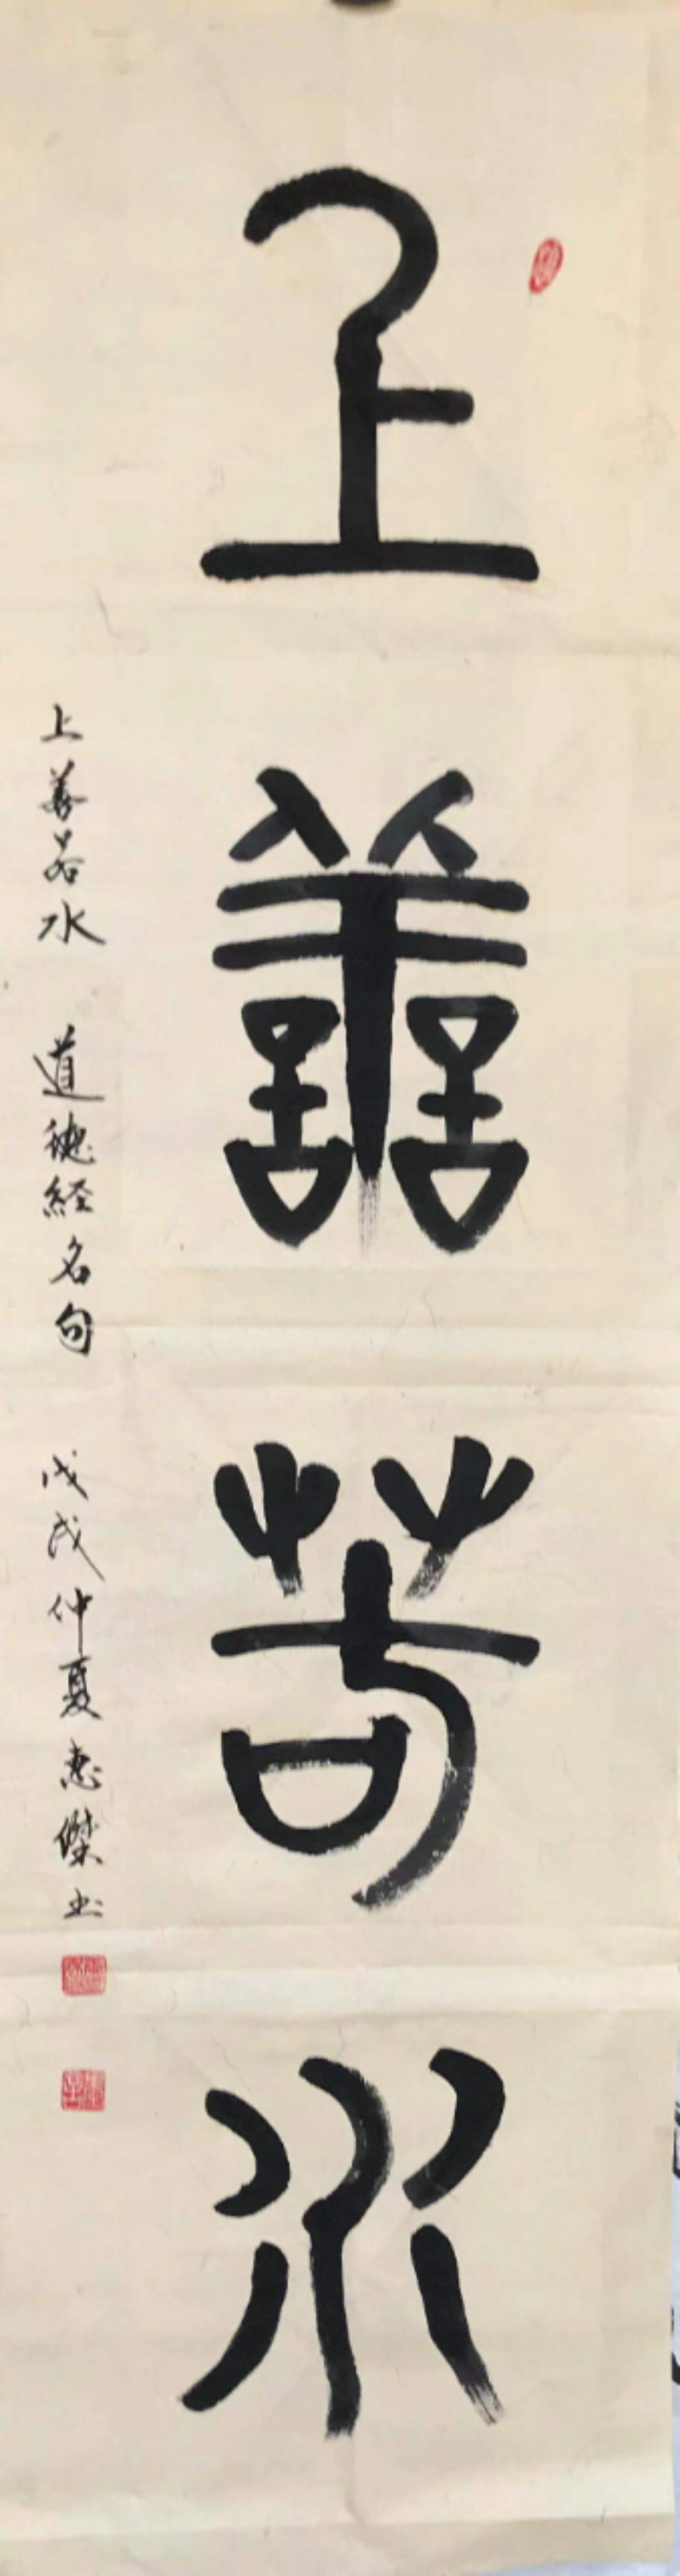 上善若水
上善若水 道德経名句 戊戌仲夏惠傑书